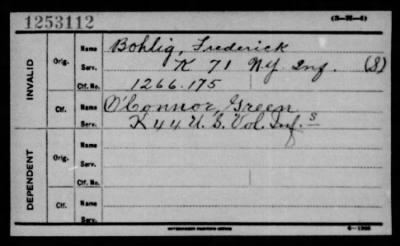 1253112
(3—31—4)
INVALID
Orig.
Name Bohlig, Frederick
Serv. K 71 NY Inf. (S)
Ctf. No. 1266.175
Ctf.
Name O'Connor, Green
Serv. K 44 U.S. Vol. Inf. S
DEPENDENT
Orig.
Name
Serv.
Ctf. No.
Ctf.
Name
Serv.
GOVERNMENT PRINTING OFFICE